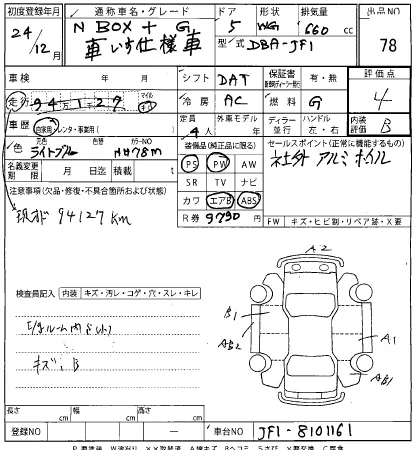 初度登録年月 通称車名・グレード ドア 形状 排気量 出品NO
24/12月 N BOX + G, 5 WG 660cc
車いす仕様車 型式 DBA-JF1 78
車検 年 月 シフト DAT 保証書 有・無 評価点
走行 94千127 マイル キロ 冷房 AC 燃料 G 4
車歴 自家用・レンタ・事業用( ) 定員 4人 外車モデル 年 ディーラー 並行 ハンドル 左・右 内装評価 B
色 元色 ライトブルー 色替 カラーNO NH78M 装備品(純正品に限る) セールスポイント(正常に機能するもの)
名義変更期限 月 日迄 積載 t PS PW AW 社外アルミホイル
注意事項(欠品・修復・不具合箇所および状態) SR TV ナビ
カワ エアB ABS
現メーター 94127km R券 9790 FW キズ・ヒビ割・リペア跡・X要
A2
検査員記入 内装 キズ・汚レ・コゲ・穴・スレ・キレ
B1
AB2 A1
キズ、B AB1
長さ cm 幅 cm 高さ cm
登録NO 車台NO JF1-8101161